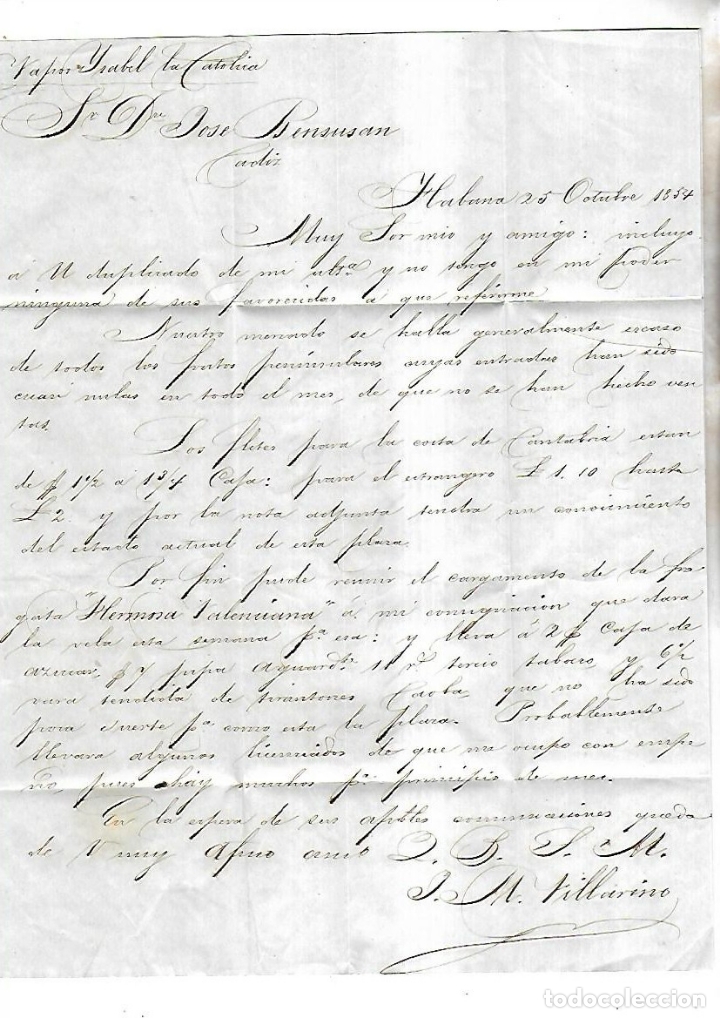 Vapor Ysabel la Catolica
Sr Dn Jose Bensusan
Cadiz
Habana 25 Octubre 1854
Muy Sor mio y amigo: incluyo
á U duplicado de mi ulta y no tengo en mi poder
ninguna de sus favorecidas a que referirme
Nuestro mercado se halla generalmente escaso
de todos los frutos peninsulares cuyas entradas han sido
cuasi nulas en todo el mes, de que no se han hecho ven
tas.
Los fletes para la costa de Cantabria estan
de $ 1 1/2 á 1 3/4 Caja: para el estrangero £ 1.10 hasta
£ 2. y por la nota adjunta tendra un conocimiento
del estado actual de esta plaza.
Por fin pude reunir el cargamento de la fra
gata "Hermosa Valenciana" á mi consignacion que dara
la vela esta semana pa esa: y lleva á 2 Caja de
azucar, $ 7 pipa aguardte 11 rs tercio tabaco y 6 1/2
vara tendida de tirantones Caoba que no ha sido
poca suerte pa como esta la plaza. Probablemente
llevara algunos licenciados de que me ocupo con empe
ño, pues hay muchos pa principio de mes.
En la espera de sus comunicaciones queda
de V muy afmo amo Q. B. S. M.
J. M. Villarino
todocoleccion